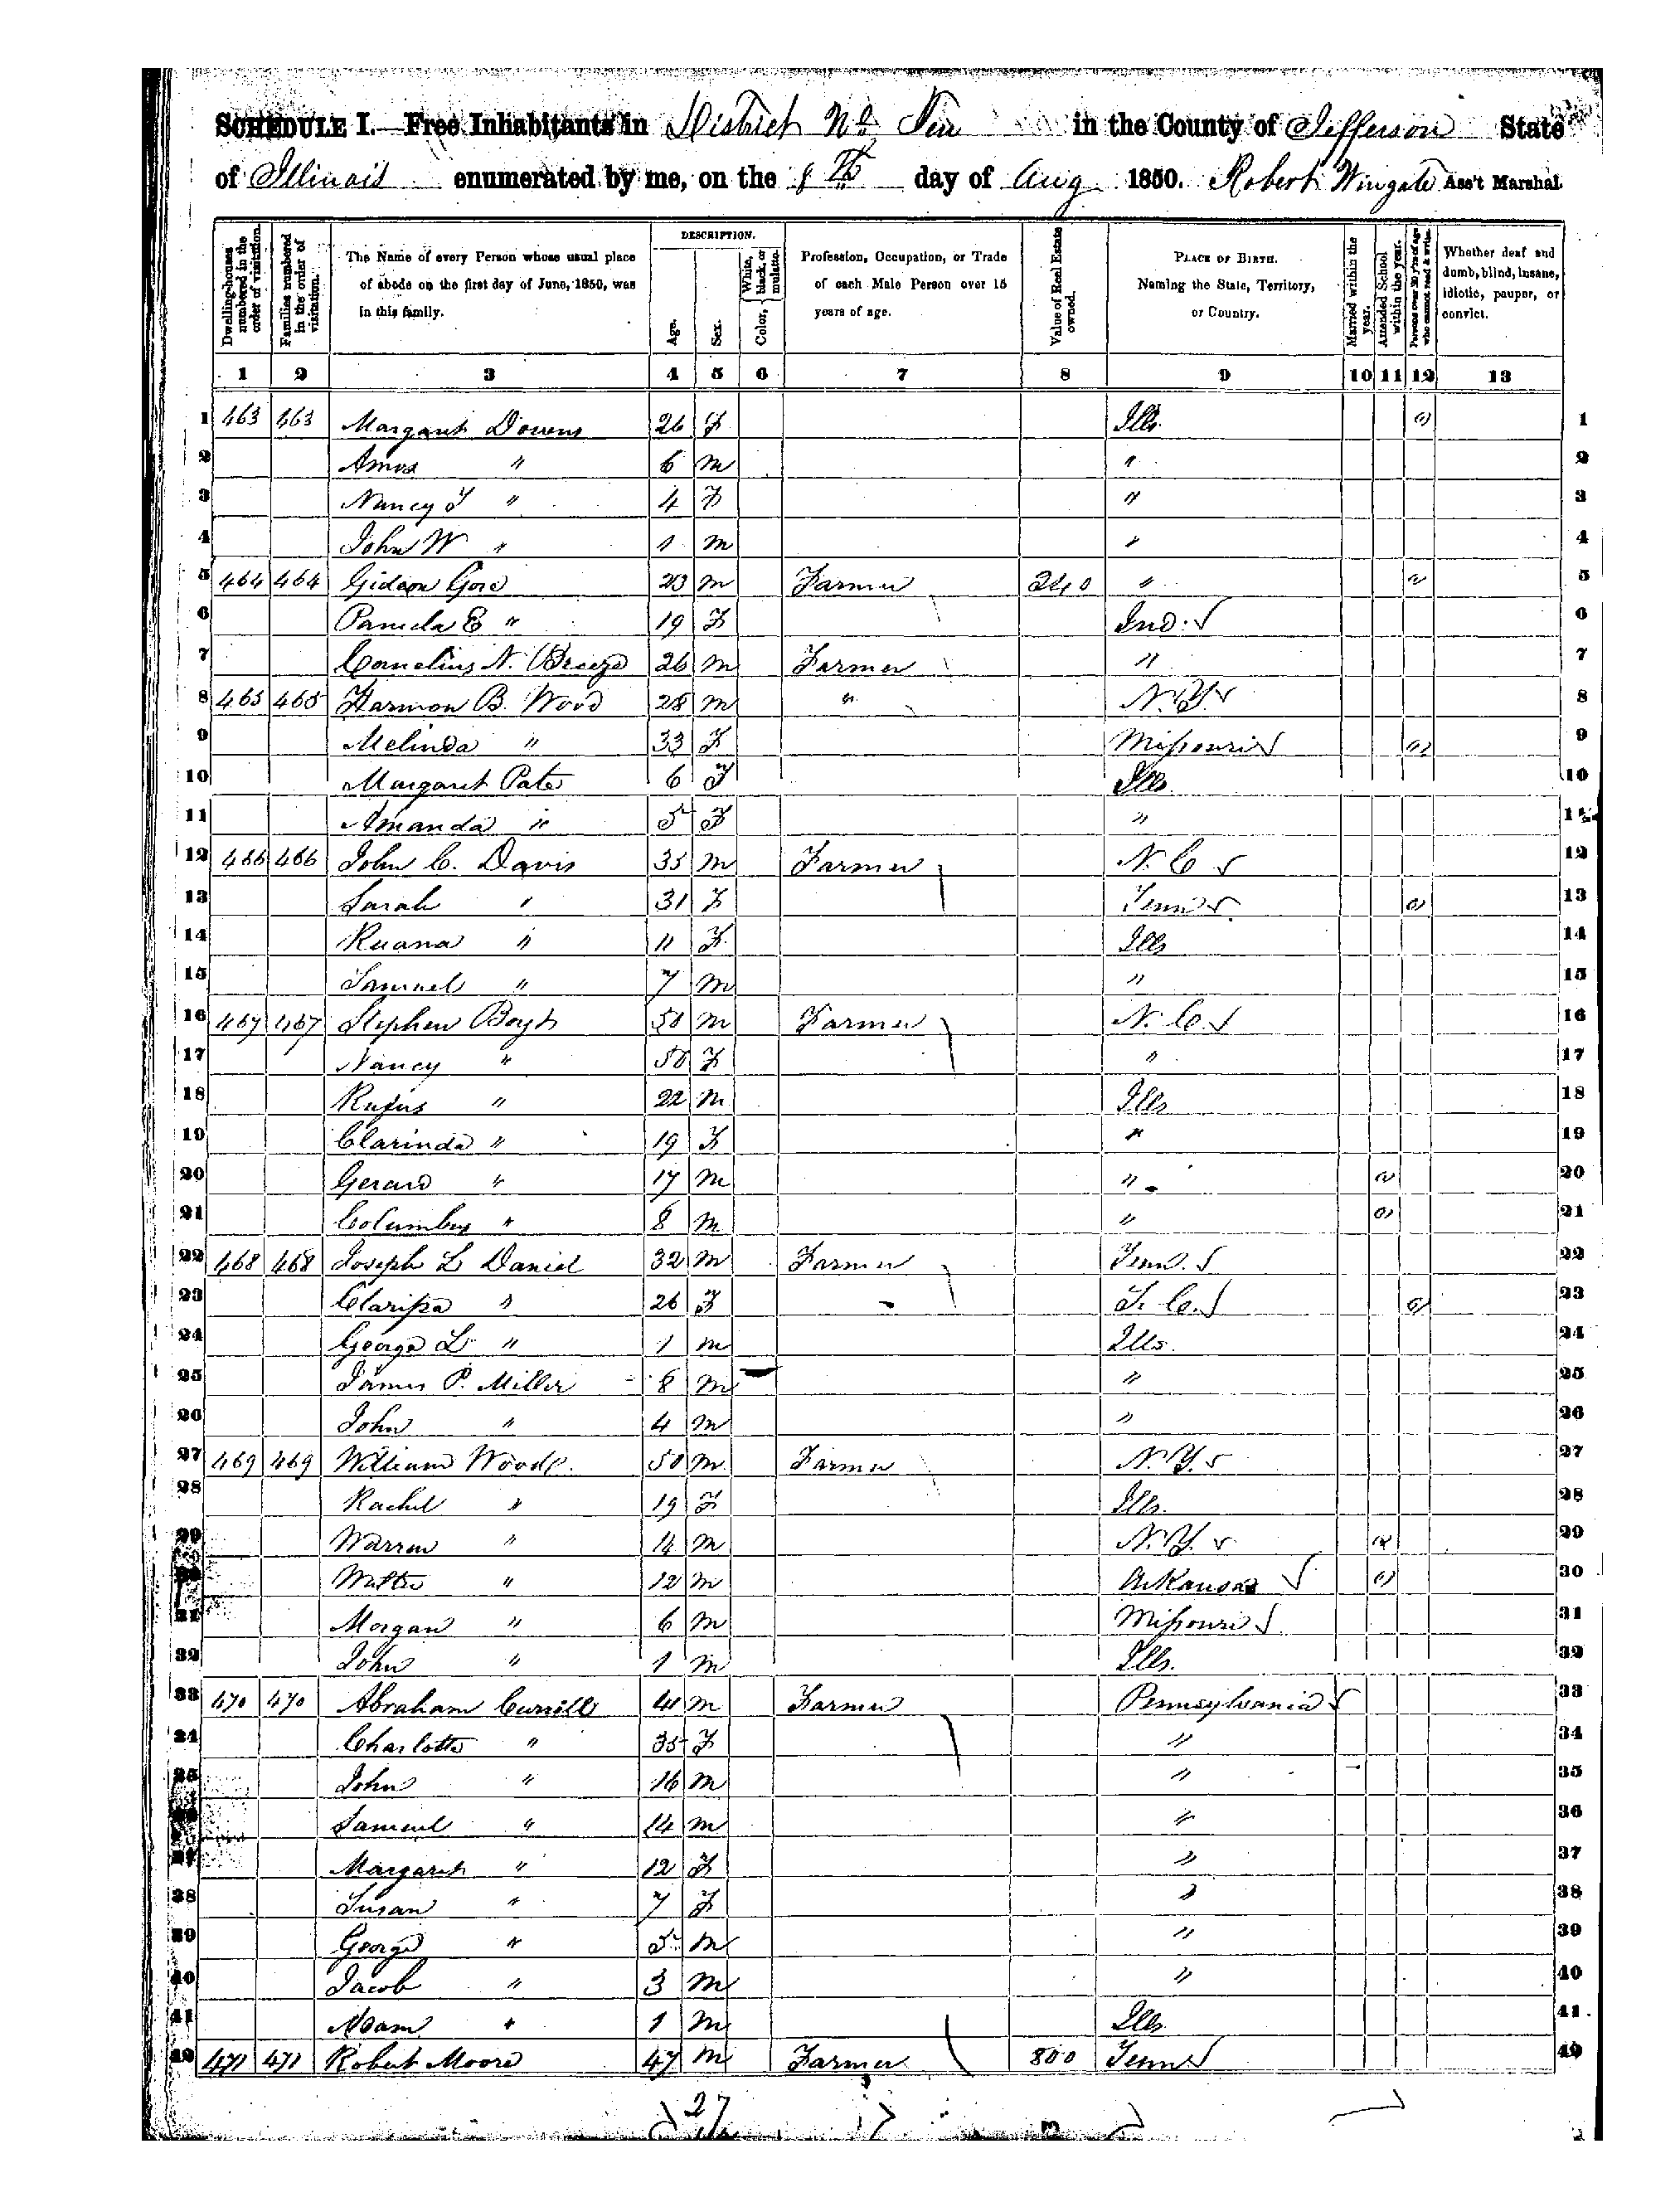 SCHEDULE I.—Free Inhabitants in District No Ten in the County of Jefferson State
of Illinois enumerated by me, on the 8th day of Aug 1850. Robert Wingate Ass't Marshal.
Dwelling-houses numbered in the order of visitation.
Families numbered in the order of visitation.
The Name of every Person whose usual place of abode on the first day of June, 1850, was in this family.
DESCRIPTION.
Age.
Sex.
Color, White, black, or mulatto.
Profession, Occupation, or Trade of each Male Person over 15 years of age.
Value of Real Estate owned.
PLACE OF BIRTH. Naming the State, Territory, or Country.
Married within the year.
Attended School within the year.
Persons over 20 y'rs of age who cannot read & write.
Whether deaf and dumb, blind, insane, idiotic, pauper, or convict.
1 2 3 4 5 6 7 8 9 10 11 12 13
1 463 463 Margaret Downs 26 F Ills. 1
2 Amos " 6 m " 2
3 Nancy J " 4 F " 3
4 John W " 1 m " 4
5 464 464 Gideon Gore 23 m Farmer 240 " 5
6 Pamela E " 19 F Ind. 6
7 Cornelius N. Breeze 26 m Farmer " 7
8 465 465 Harmon B. Wood 28 m " N.Y. 8
9 Melinda " 33 F Missouri 9
10 Margaret Pate 6 F Ills. 10
11 Amanda " 5 F " 11
12 466 466 John C. Davis 35 m Farmer N. C 12
13 Sarah " 31 F Tenn 13
14 Ruana " 11 F Ills 14
15 Samuel " 7 m " 15
16 467 467 Stephen Boyt 50 m Farmer N. C. 16
17 Nancy " 50 F " 17
18 Rufus " 22 m Ills 18
19 Clarinda " 19 F " 19
20 Gerard " 17 m " 20
21 Columbus " 8 m " 21
22 468 468 Joseph L Daniel 32 m Farmer Tenn. 22
23 Clarissa " 26 F S. C. 23
24 George L " 1 m Ills. 24
25 James P. Miller 8 m " 25
26 John " 4 m " 26
27 469 469 William Wood 50 m Farmer N.Y. 27
28 Rachel " 19 F Ills. 28
29 Warren " 14 m N.Y. 29
30 " 12 m Arkansas 30
31 Morgan " 6 m Missouri 31
32 John " 1 m Ills. 32
33 470 470 Abraham 41 m Farmer Pennsylvania 33
34 Charlotte " 35 F " 34
35 John " 16 m " 35
36 Samuel " 14 m " 36
37 Margaret " 12 F " 37
38 Susan " 7 F " 38
39 George " 5 m " 39
40 Jacob " 3 m " 40
41 Adam " 1 m Ills. 41
42 471 471 Robert Moore 47 m Farmer 800 Tenn 42
27